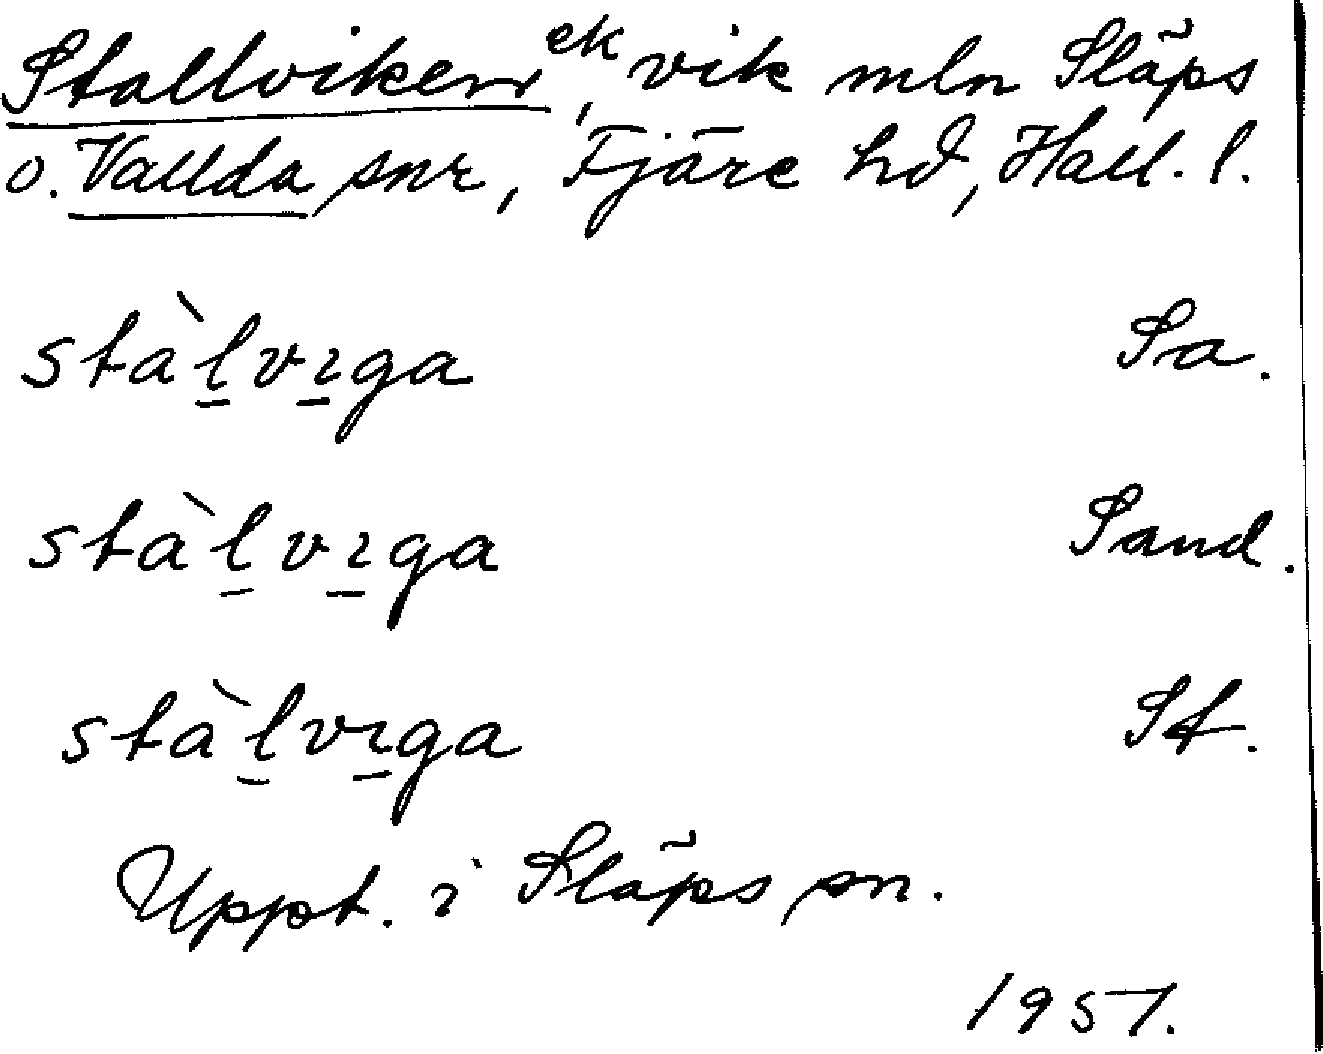 Stallviken ek, vik mln Släps
o. Vallda snr, Fjäre hd, Hall. l.
stàl̠vı̠ga Sa.
stàl̠vı̠ga Sand.
stàl̠vı̠ga St.
Uppt. i Släps sn.
1951.